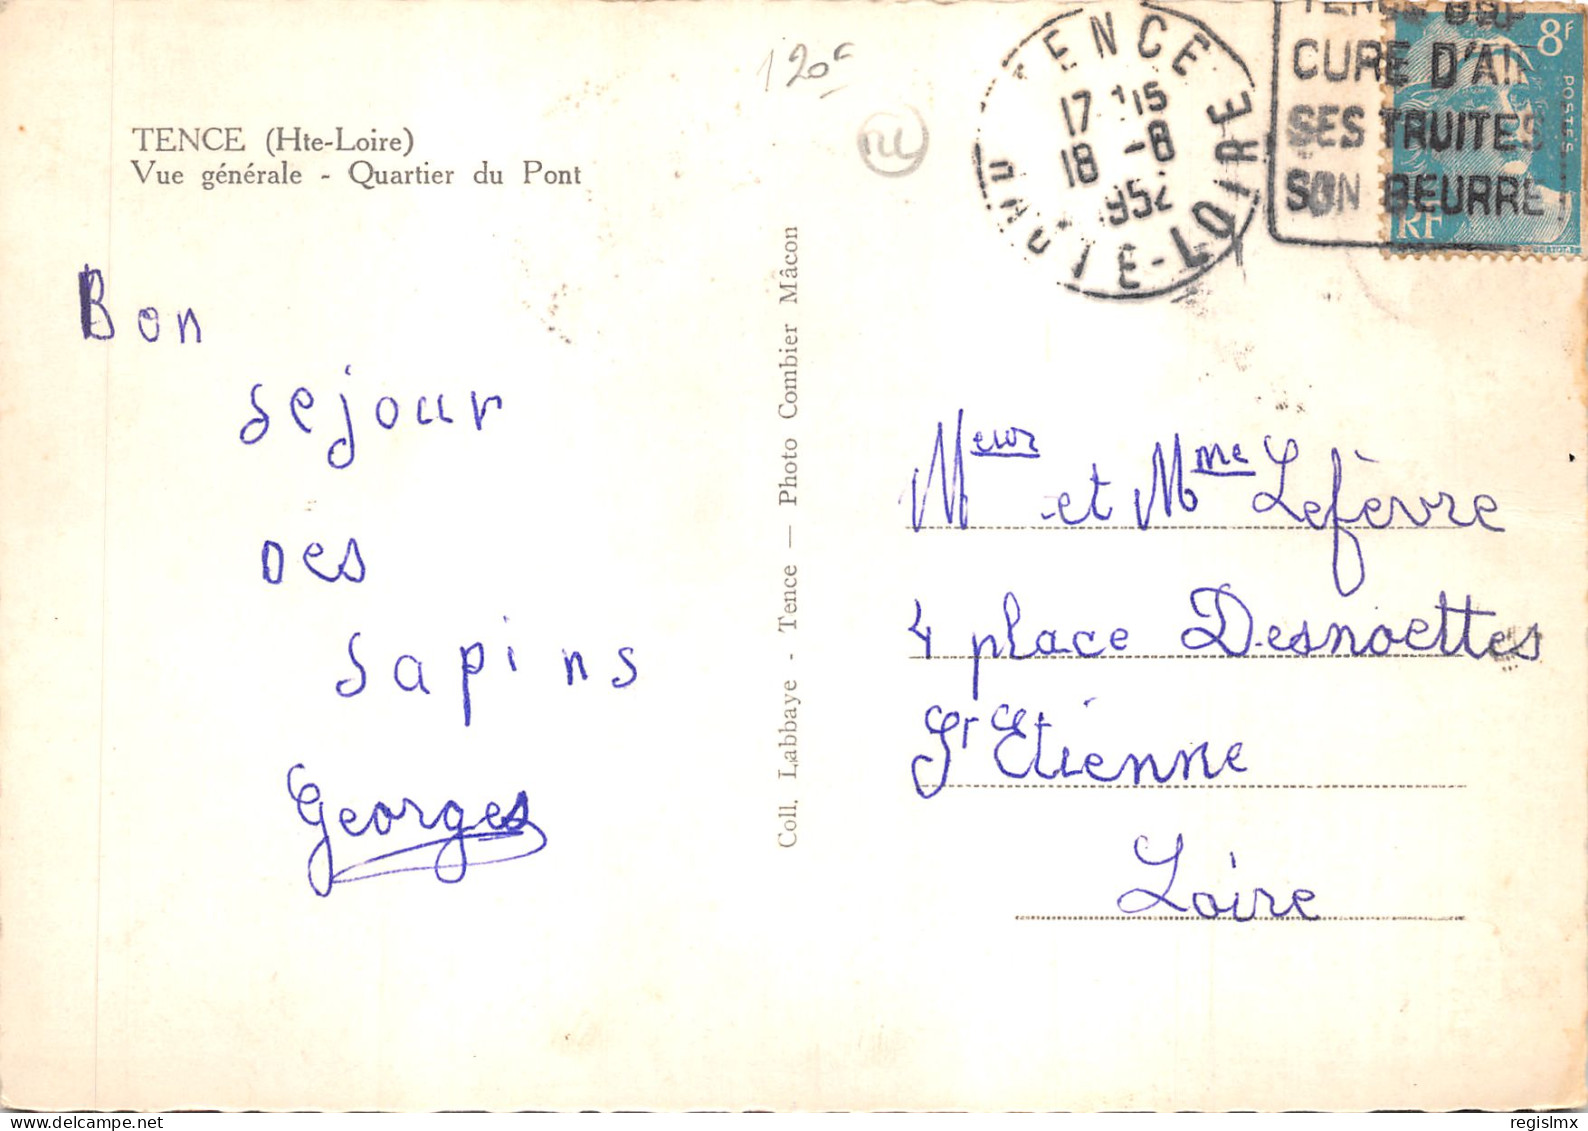 TENCE (Hte-Loire)
Vue générale - Quartier du Pont
120 F
Bon
sejour
des
sapins
Georges
Coll. Labbaye - Tence — Photo Combier Mâcon
TENCE
17 15
18 -8
1952
HAUTE-LOIRE
TENCE
CURE D'AIR
SES TRUITES
SON BEURRE
8F
POSTES
RF
Meur et Mme Lefèvre
4 place Desnoettes
St Etienne
Loire
regislmx